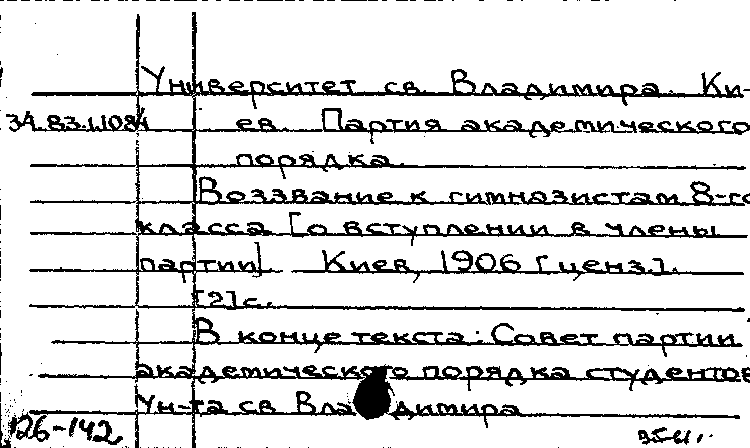 Университет св. Владимира. Ки-
34.83.1.1084 ев. Партия академического
порядка.
Воззвание к гимназистам 8-го
класса [о вступлении в члены
партии]. Киев, 1906 [ценз.].
[2]с.
В конце текста: Совет партии
академического порядка студентов
Ун-та св Владимира
126-142